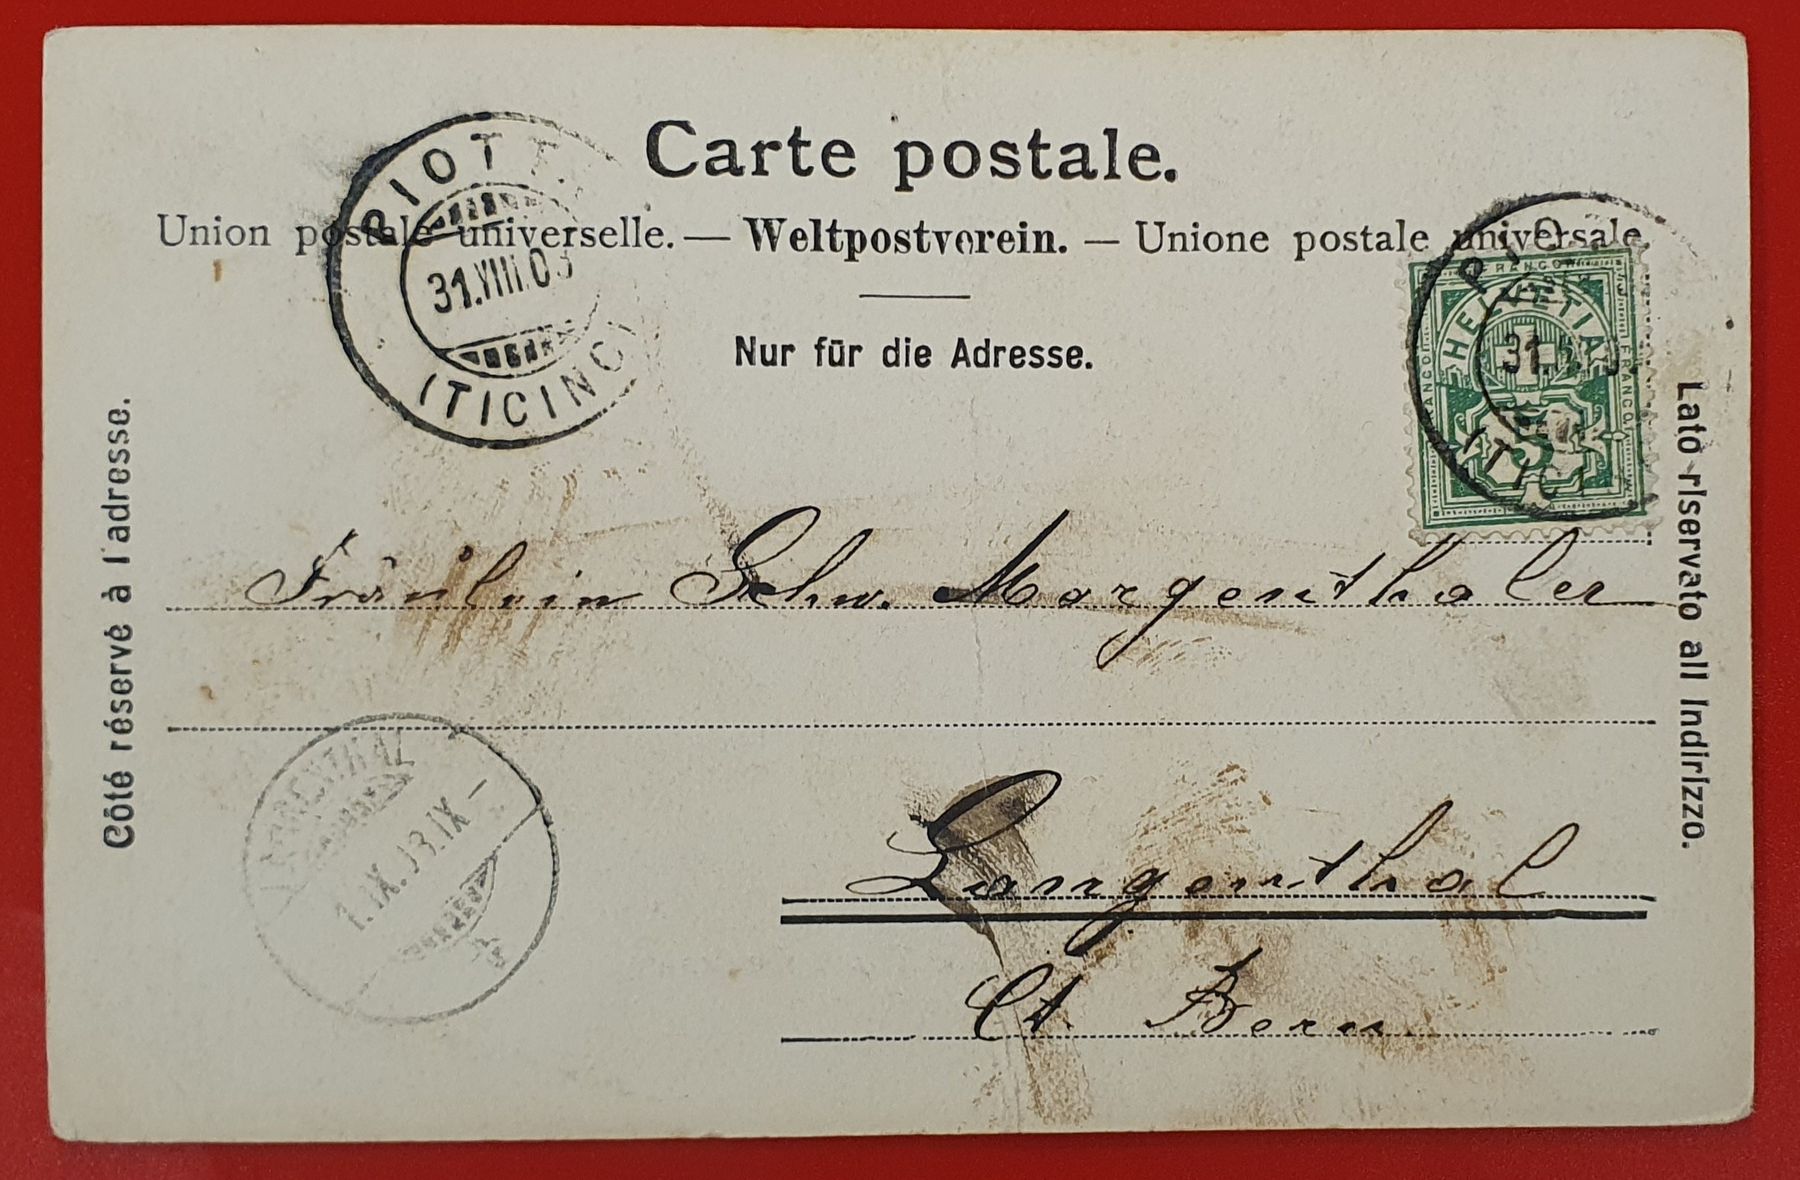 Carte postale.
Union postale universelle. — Weltpostverein. — Unione postale universale.
Nur für die Adresse.
Côté réservé à l'adresse.
Lato riservato all Indirizzo.
PIOTTA
31.VIII.03
(TICINO)
FRANCO
HELVETIA
FRANCO
FRANCO
Fräulein Schw. Morgenthaler
Langenthal
Ct. Bern.
LANGENTHAL
1.IX.03.IX–